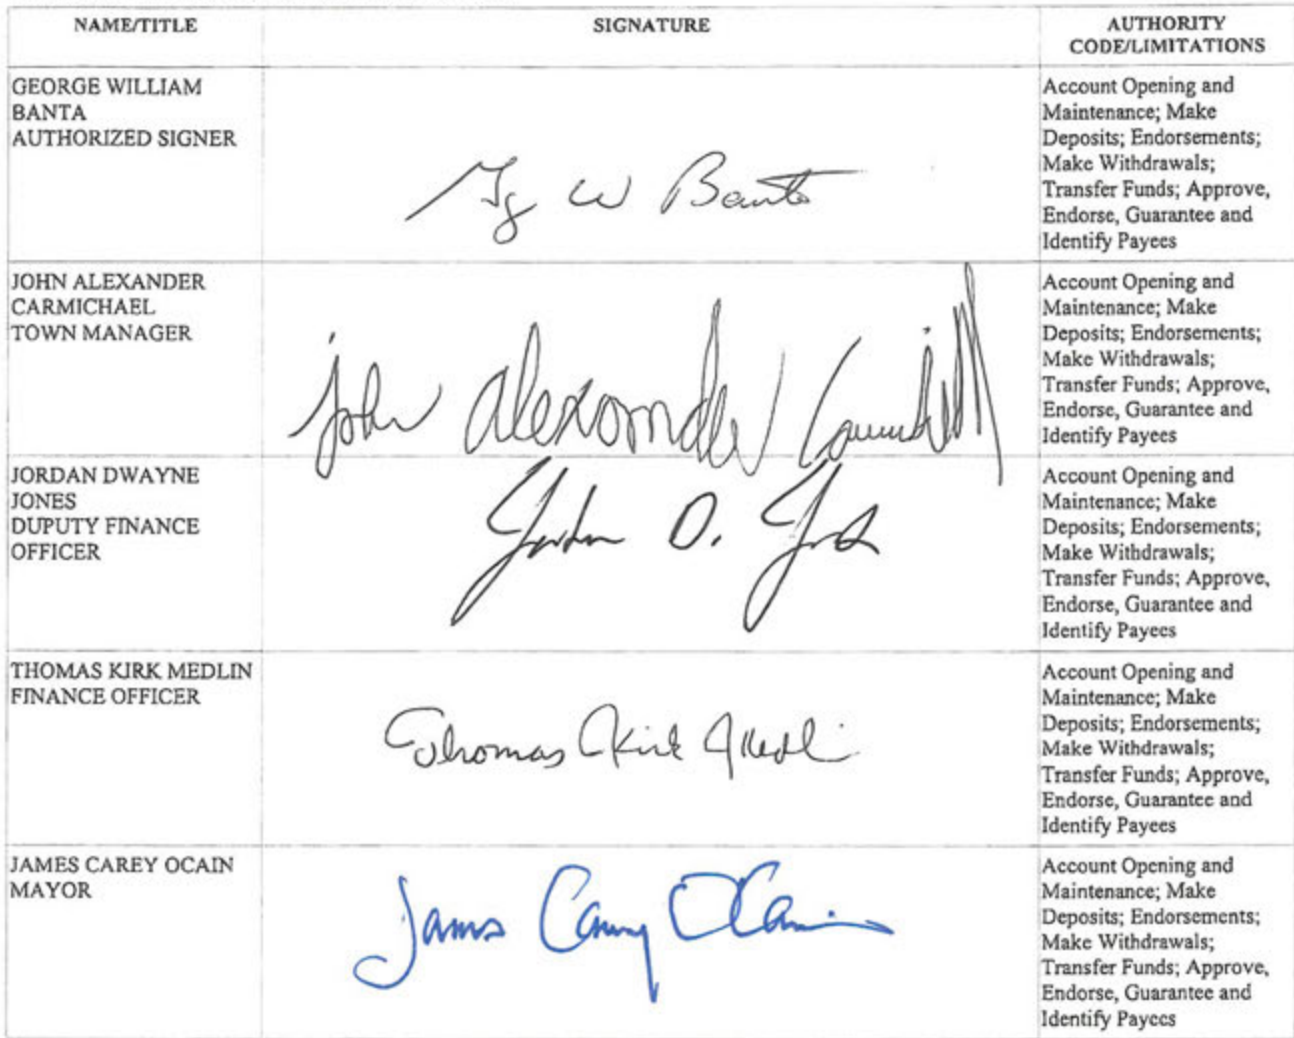 NAME/TITLE SIGNATURE AUTHORITY
CODE/LIMITATIONS
GEORGE WILLIAM
BANTA
AUTHORIZED SIGNER
W Banta
Account Opening and
Maintenance; Make
Deposits; Endorsements;
Make Withdrawals;
Transfer Funds; Approve,
Endorse, Guarantee and
Identify Payees
JOHN ALEXANDER
CARMICHAEL
TOWN MANAGER
john alexander Carmichael
Account Opening and
Maintenance; Make
Deposits; Endorsements;
Make Withdrawals;
Transfer Funds; Approve,
Endorse, Guarantee and
Identify Payees
JORDAN DWAYNE
JONES
DUPUTY FINANCE
OFFICER
Jordan D. Jones
Account Opening and
Maintenance; Make
Deposits; Endorsements;
Make Withdrawals;
Transfer Funds; Approve,
Endorse, Guarantee and
Identify Payees
THOMAS KIRK MEDLIN
FINANCE OFFICER
Thomas Kirk Medlin
Account Opening and
Maintenance; Make
Deposits; Endorsements;
Make Withdrawals;
Transfer Funds; Approve,
Endorse, Guarantee and
Identify Payees
JAMES CAREY OCAIN
MAYOR
James Carey OCain
Account Opening and
Maintenance; Make
Deposits; Endorsements;
Make Withdrawals;
Transfer Funds; Approve,
Endorse, Guarantee and
Identify Payees